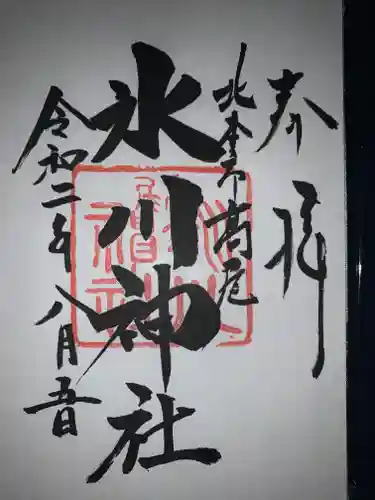 奉拝
北本市高尾
氷川神社
令和二年八月吾日